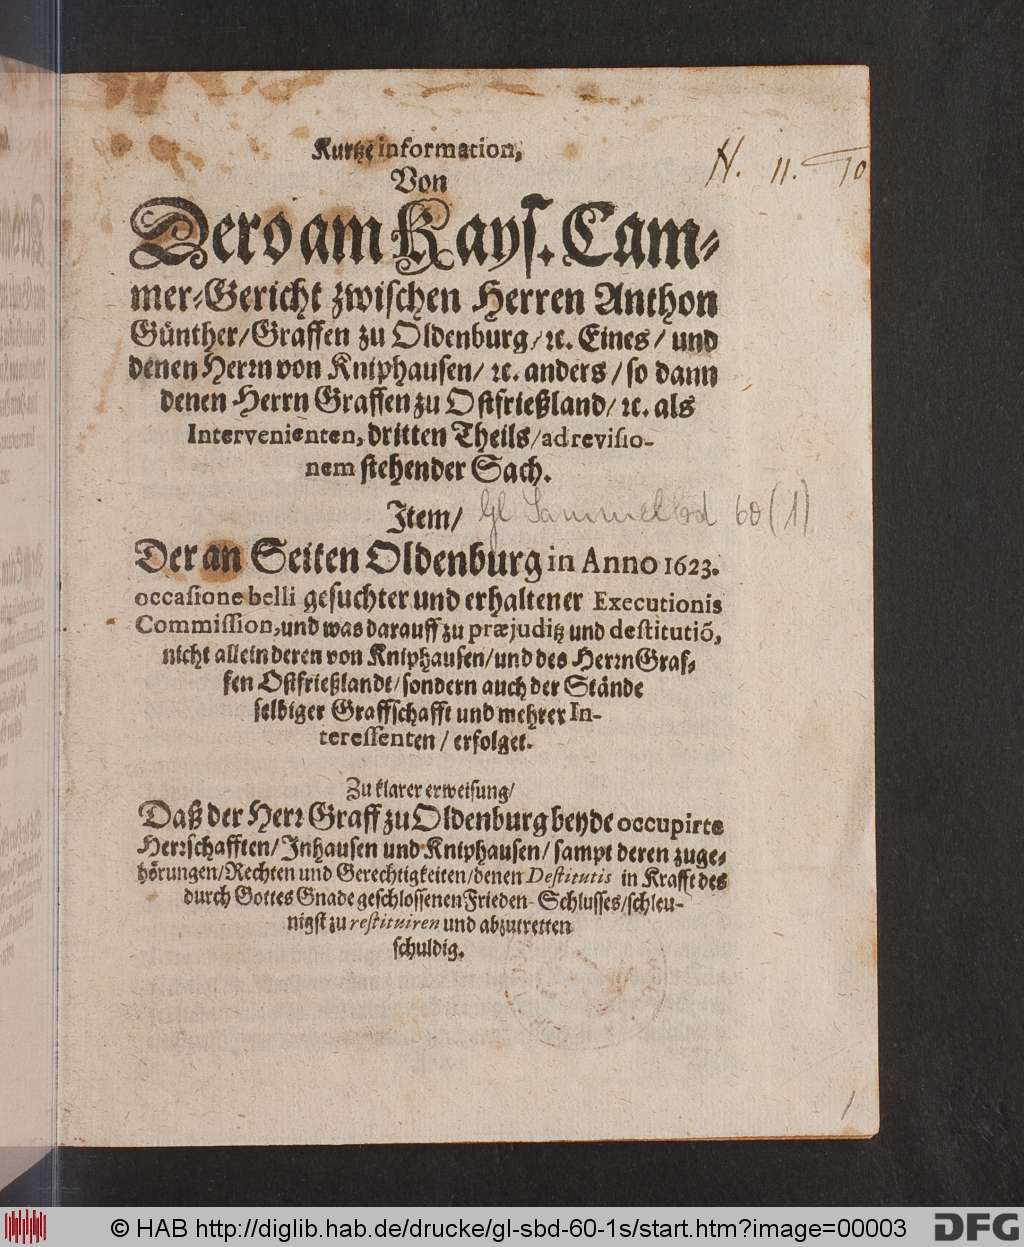 Kurtze information,
Von
Dero am Kays. Cam-
mer-Gericht zwischen Herren Anthon
Günther/Graffen zu Oldenburg/ ꝛc. Eines/ und
denen Herrn von Kniphausen/ ꝛc. anders/ so dann
denen Herrn Graffen zu Ostfrießland/ ꝛc. als
Intervenienten, dritten Theils/ ad revisio-
nem stehender Sach.
Item/
Gl Sammelbd 60 (1)
Der an Seiten Oldenburg in Anno 1623.
occasione belli gesuchter und erhaltener Executionis
Commission, und was darauff zu præjuditz und destitutiõ,
nicht allein deren von Kniphausen/ und des Herrn Graf-
fen Ostfrießlandt/ sondern auch der Stände
selbiger Graffschafft und mehrer In-
teressenten / erfolget.
Zu klarer erweisung/
Daß der Herr Graff zu Oldenburg beyde occupirte
Herrschafften/ Inhausen und Kniphausen/ sampt deren zuge-
hörungen/ Rechten und Gerechtigkeiten/ denen Destitutis in Krafft des
durch Gottes Gnade geschlossenen Frieden-Schlusses/ schleu-
nigst zu restituiren und abzutretten
schuldig.
1
© HAB http://diglib.hab.de/drucke/gl-sbd-60-1s/start.htm?image=00003
DFG